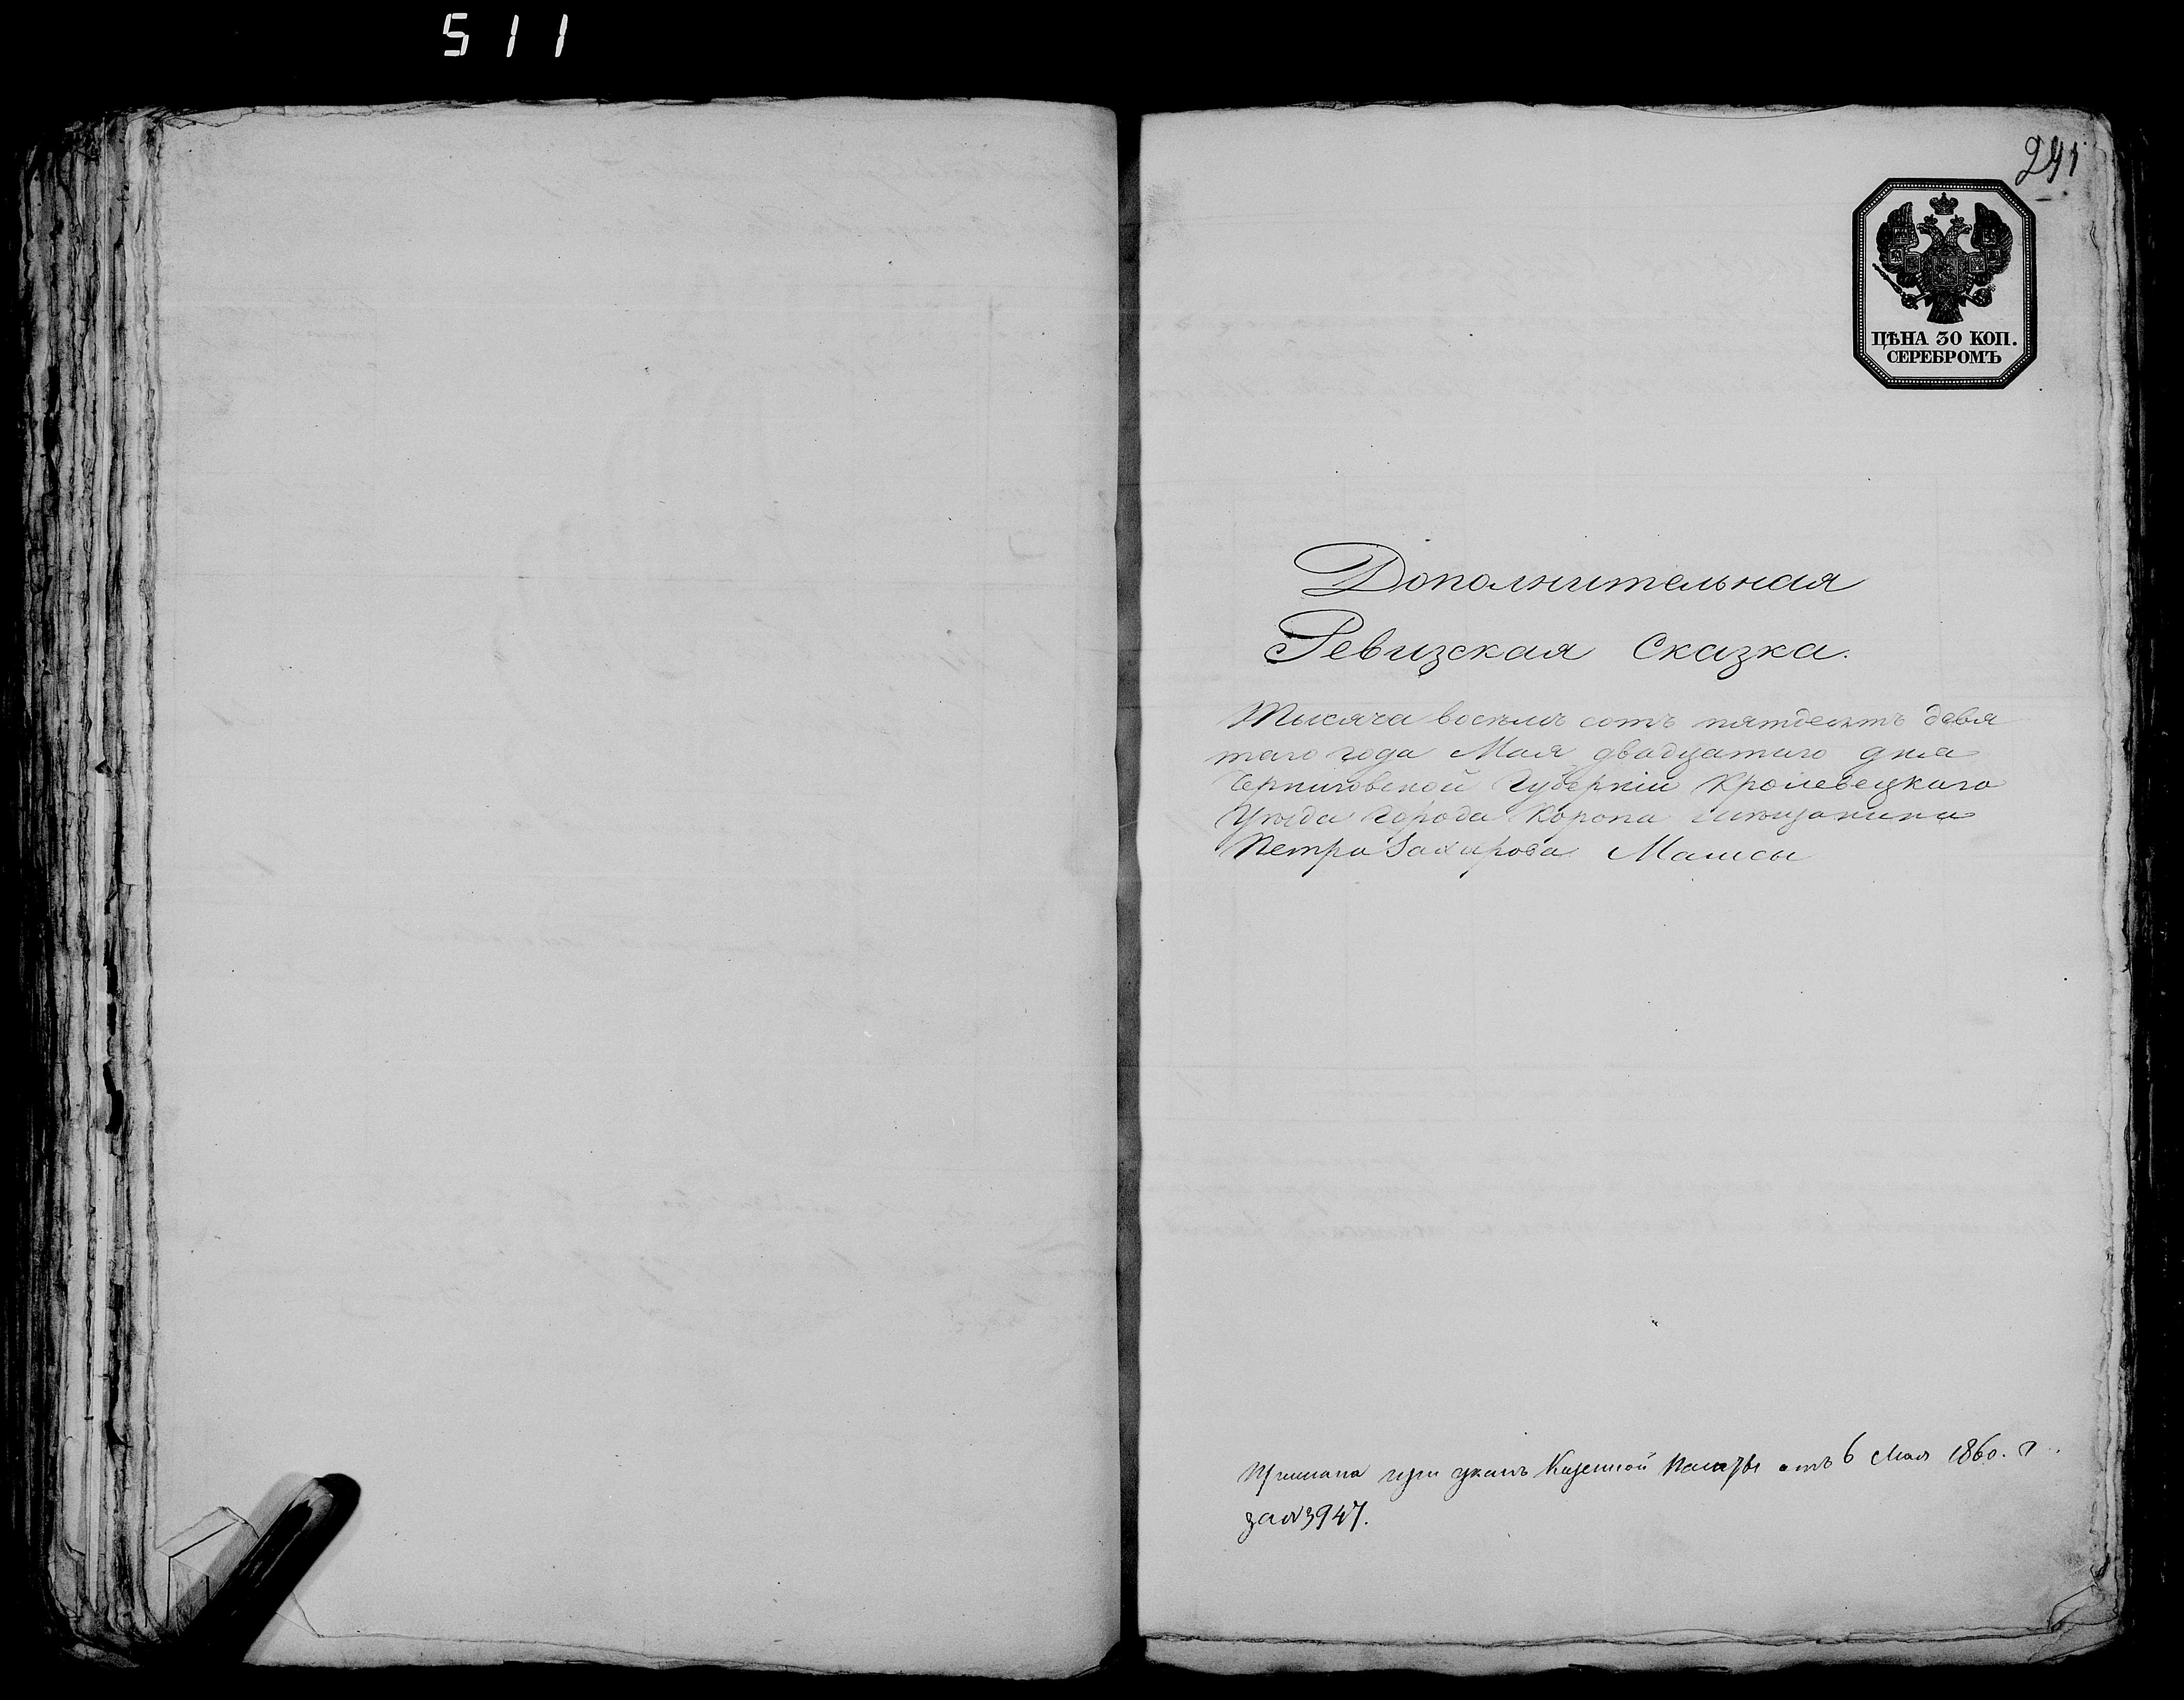 511
241
ЦѢНА 30 КОП.
СЕРЕБРОМЪ
Дополнительная
Ревизская Сказка.
Тысяча восемь сотъ пятдесятъ девя
таго года Мая двадцатаго дня
Черниговской Губерніи Кролевецкаго
Уѣзда Города Коропа мѣщанина
Петра Захарова
при указѣ Казенной Палаты отъ 6 Мая 1860. г.
за №3947.